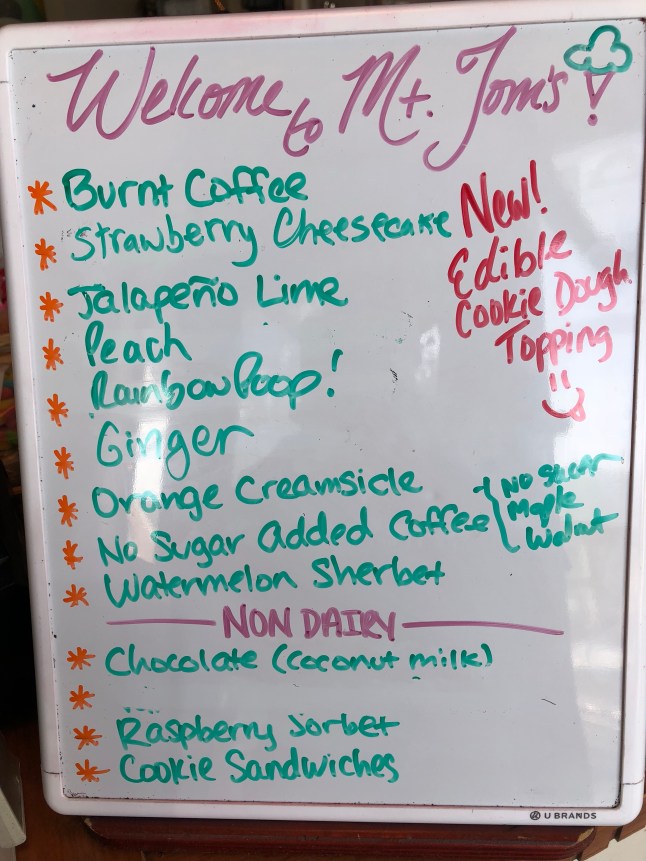 Welcome to Mt. Tom's!
* Burnt Coffee
* Strawberry Cheesecake
* Jalapeño Lime
* Peach
* Rainbow Poop!
* Ginger
* Orange Creamsicle
* No Sugar Added Coffee
* Watermelon Sherbet
New!
Edible
Cookie Dough
Topping
No Sugar
Maple
Walnut
NON DAIRY
* Chocolate (coconut milk)
*
* Raspberry Sorbet
* Cookie Sandwiches
U BRANDS